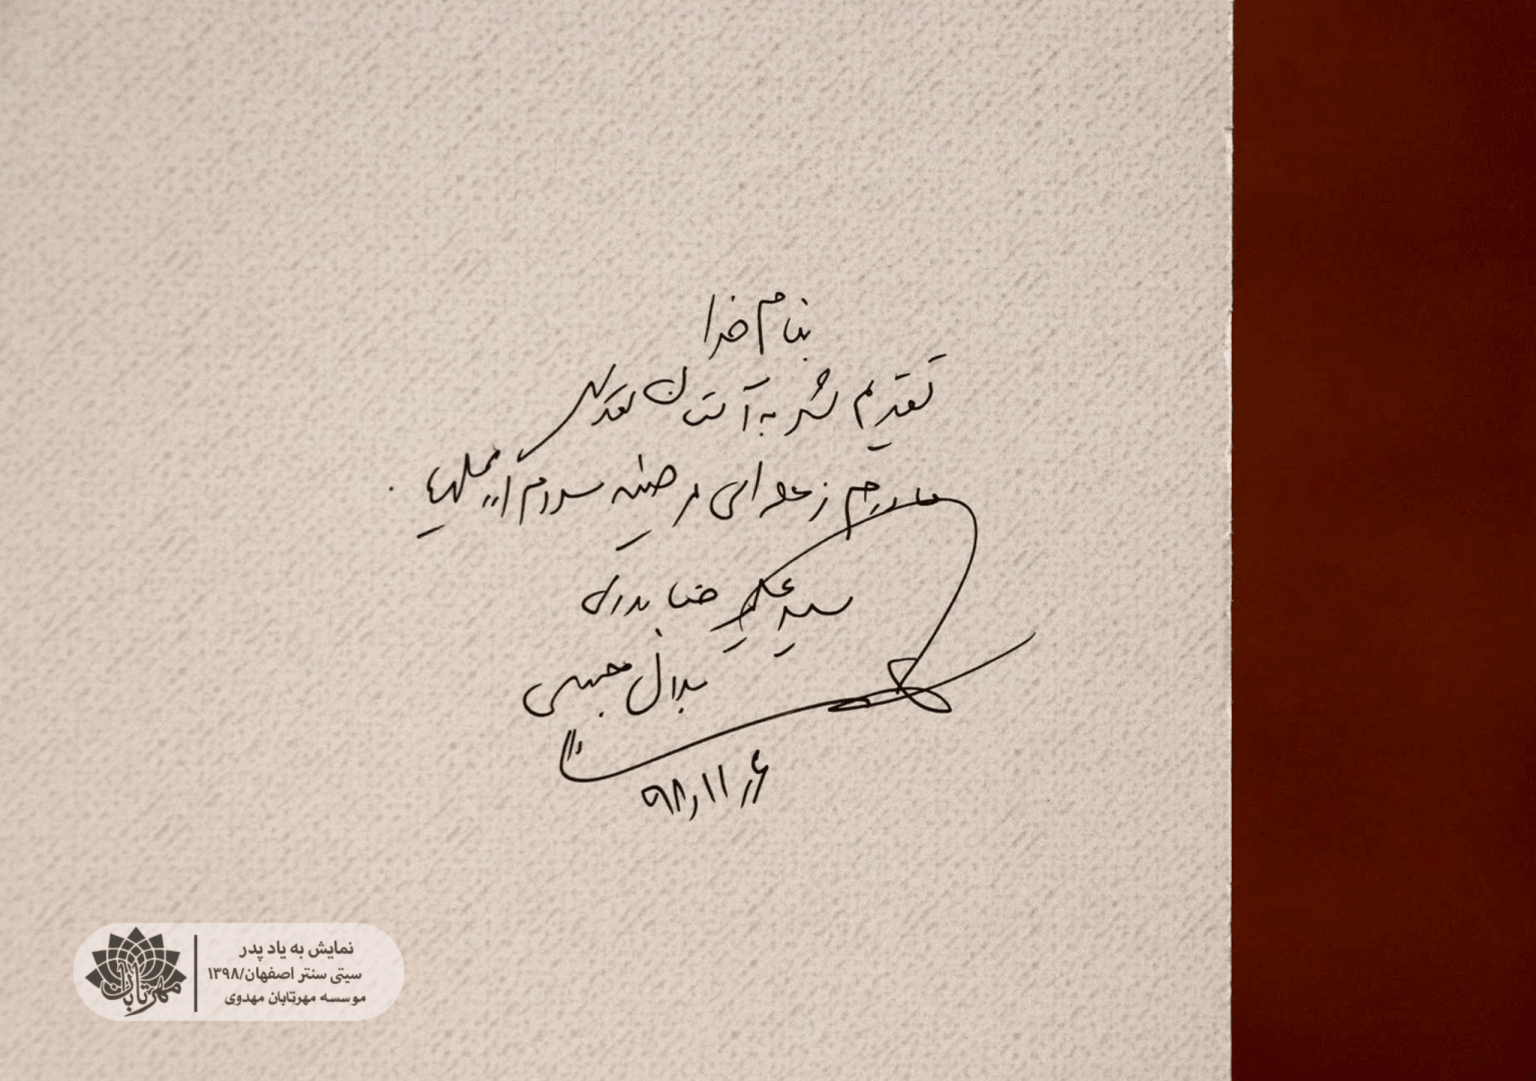 بنام خدا
تقدیم شد به آستان مقدس
مادرم زهرای مرضیه سلام الله علیها
سید علیرضا بدری
بدال مجبسی
۹۸/۱۱/۶
نمایش به یاد پدر
سیتی سنتر اصفهان/۱۳۹۸
موسسه مهرتابان مهدوی
مهرتابان